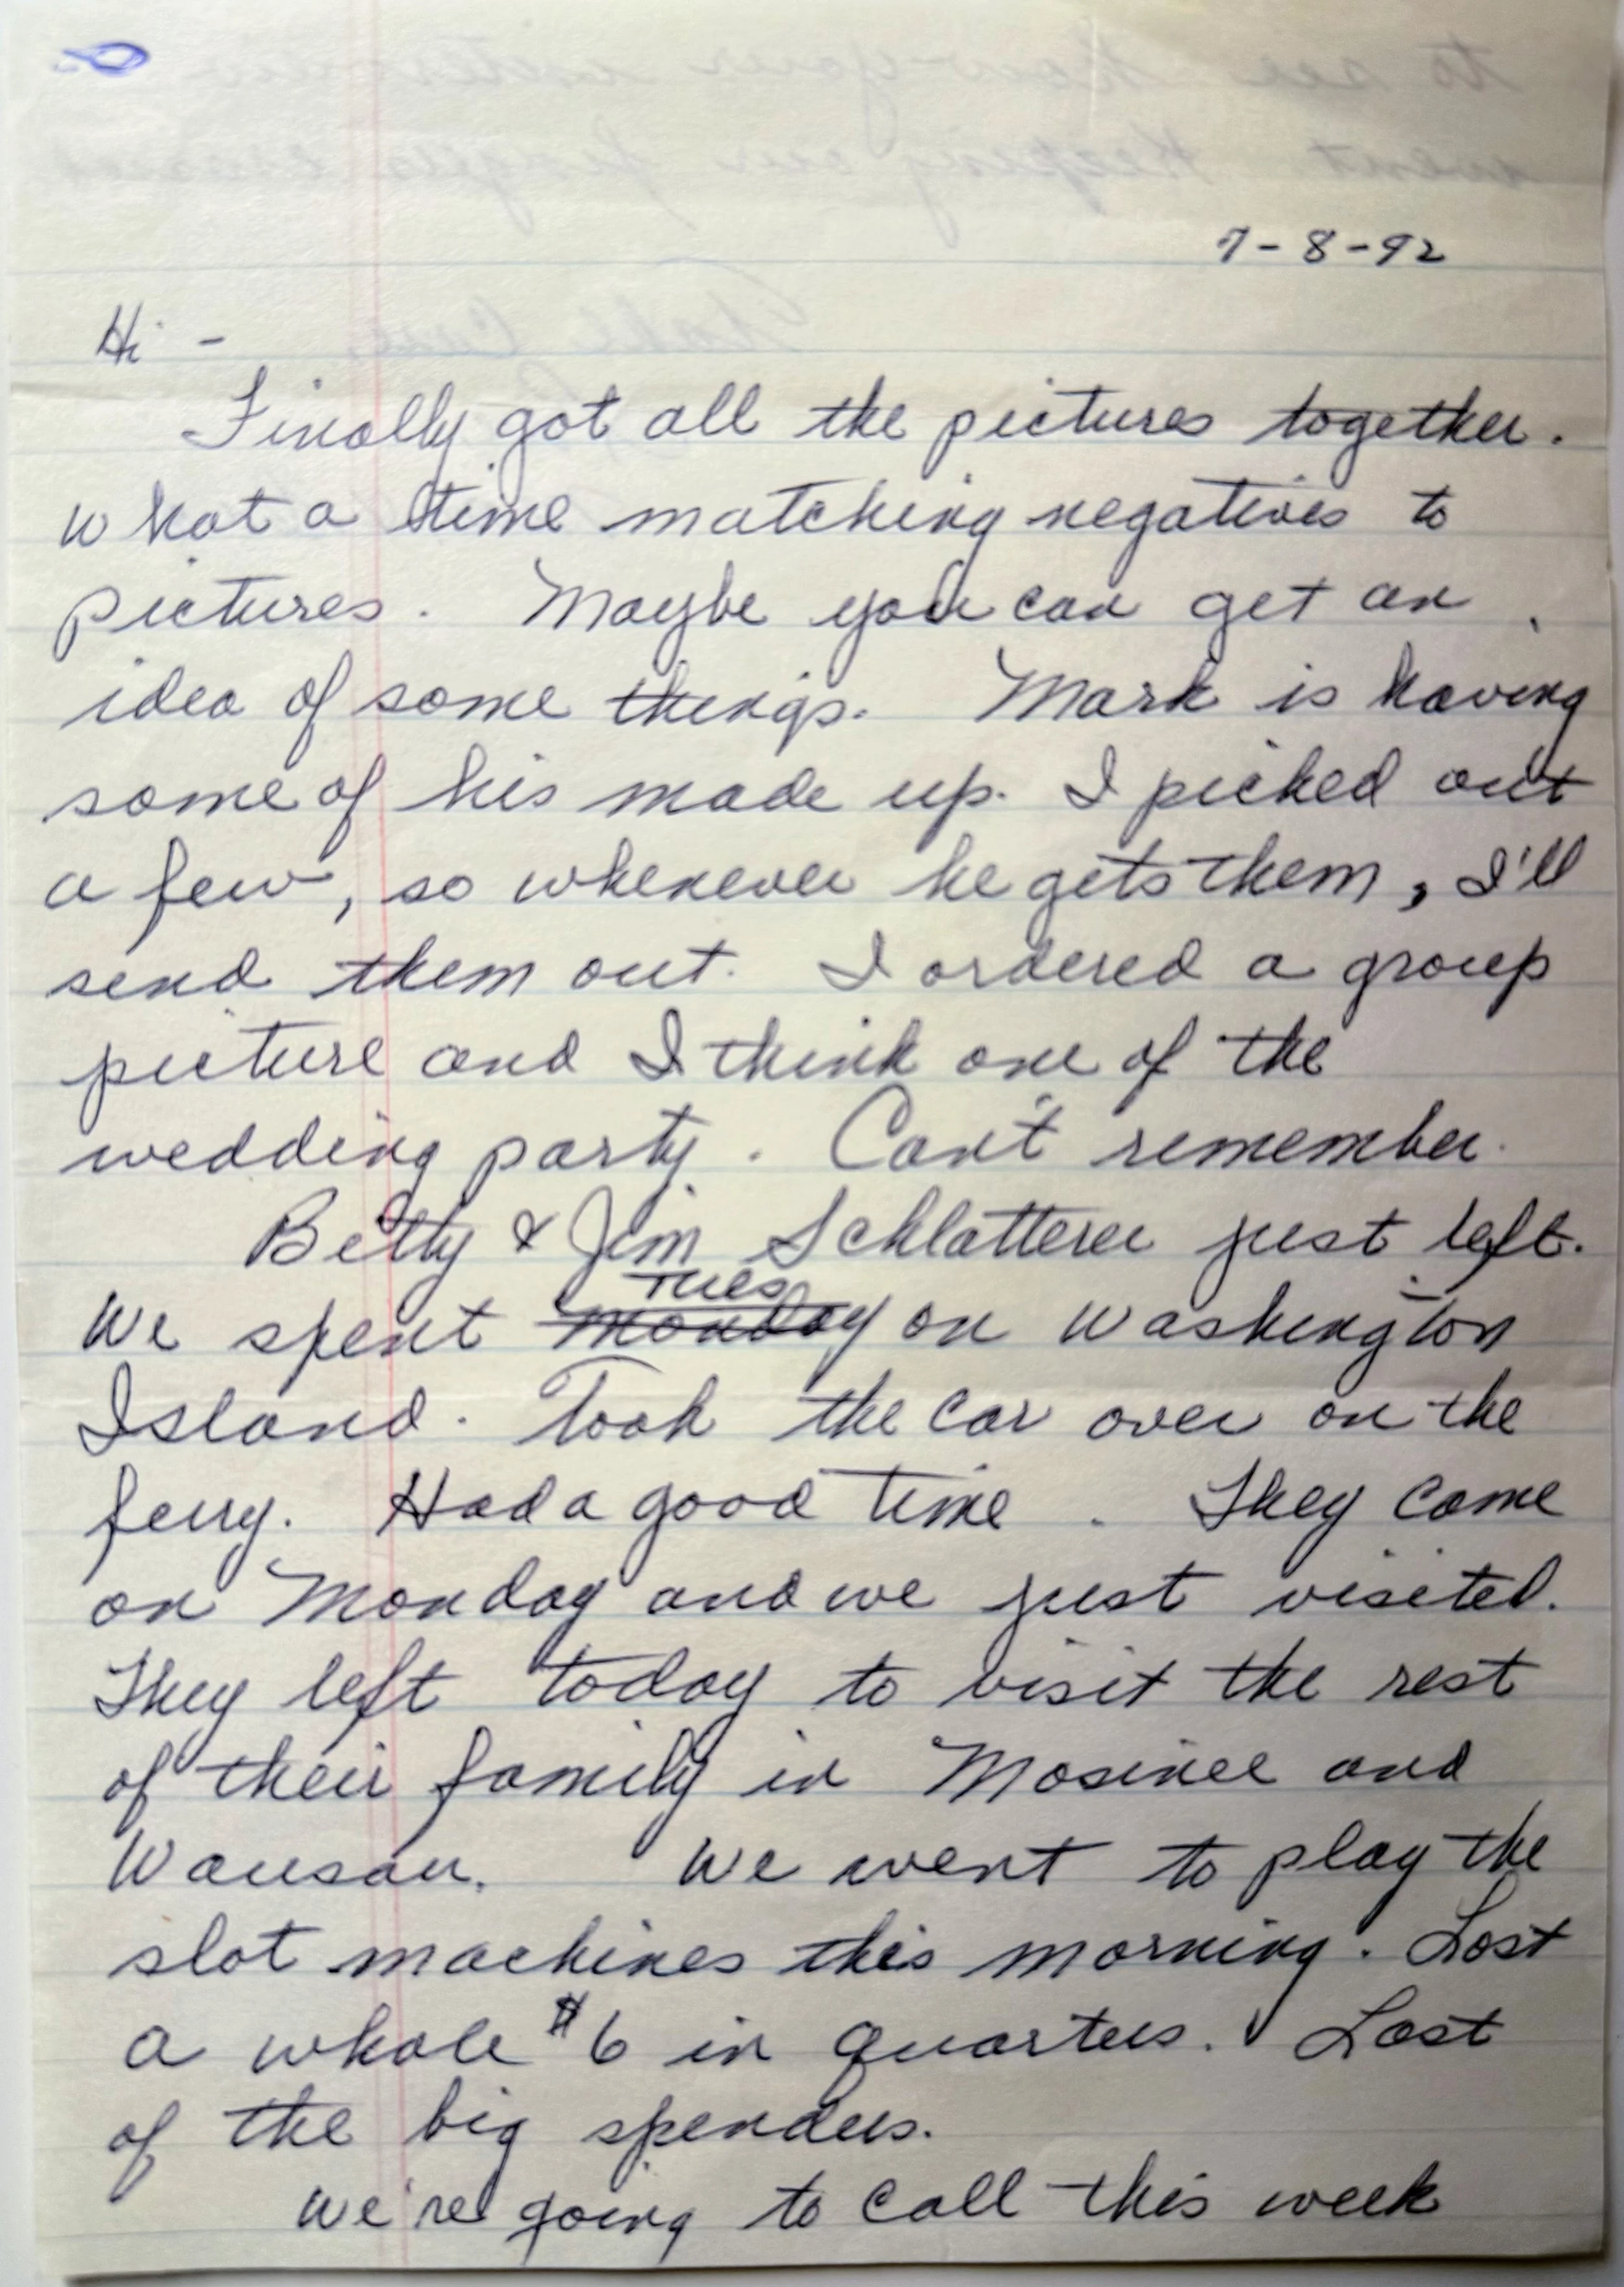 7-8-92
Hi -
Finally got all the pictures together.
What a time matching negatives to
pictures. Maybe you can get an
idea of some things. Mark is having
some of his made up. I picked out
a few, so whenever he gets them, I'll
send them out. I ordered a group
picture and I think one of the
wedding party. Can't remember.
Betty & Jim Schlatterer just left.
Tues
We spent Monday on Washington
Island. Took the car over on the
ferry. Had a good time. They came
on Monday and we just visited.
They left today to visit the rest
of their family in Mosinee and
Wausau. We went to play the
slot machines this morning. Lost
a whole $6 in quarters. Last
of the big spenders.
We're going to call this week